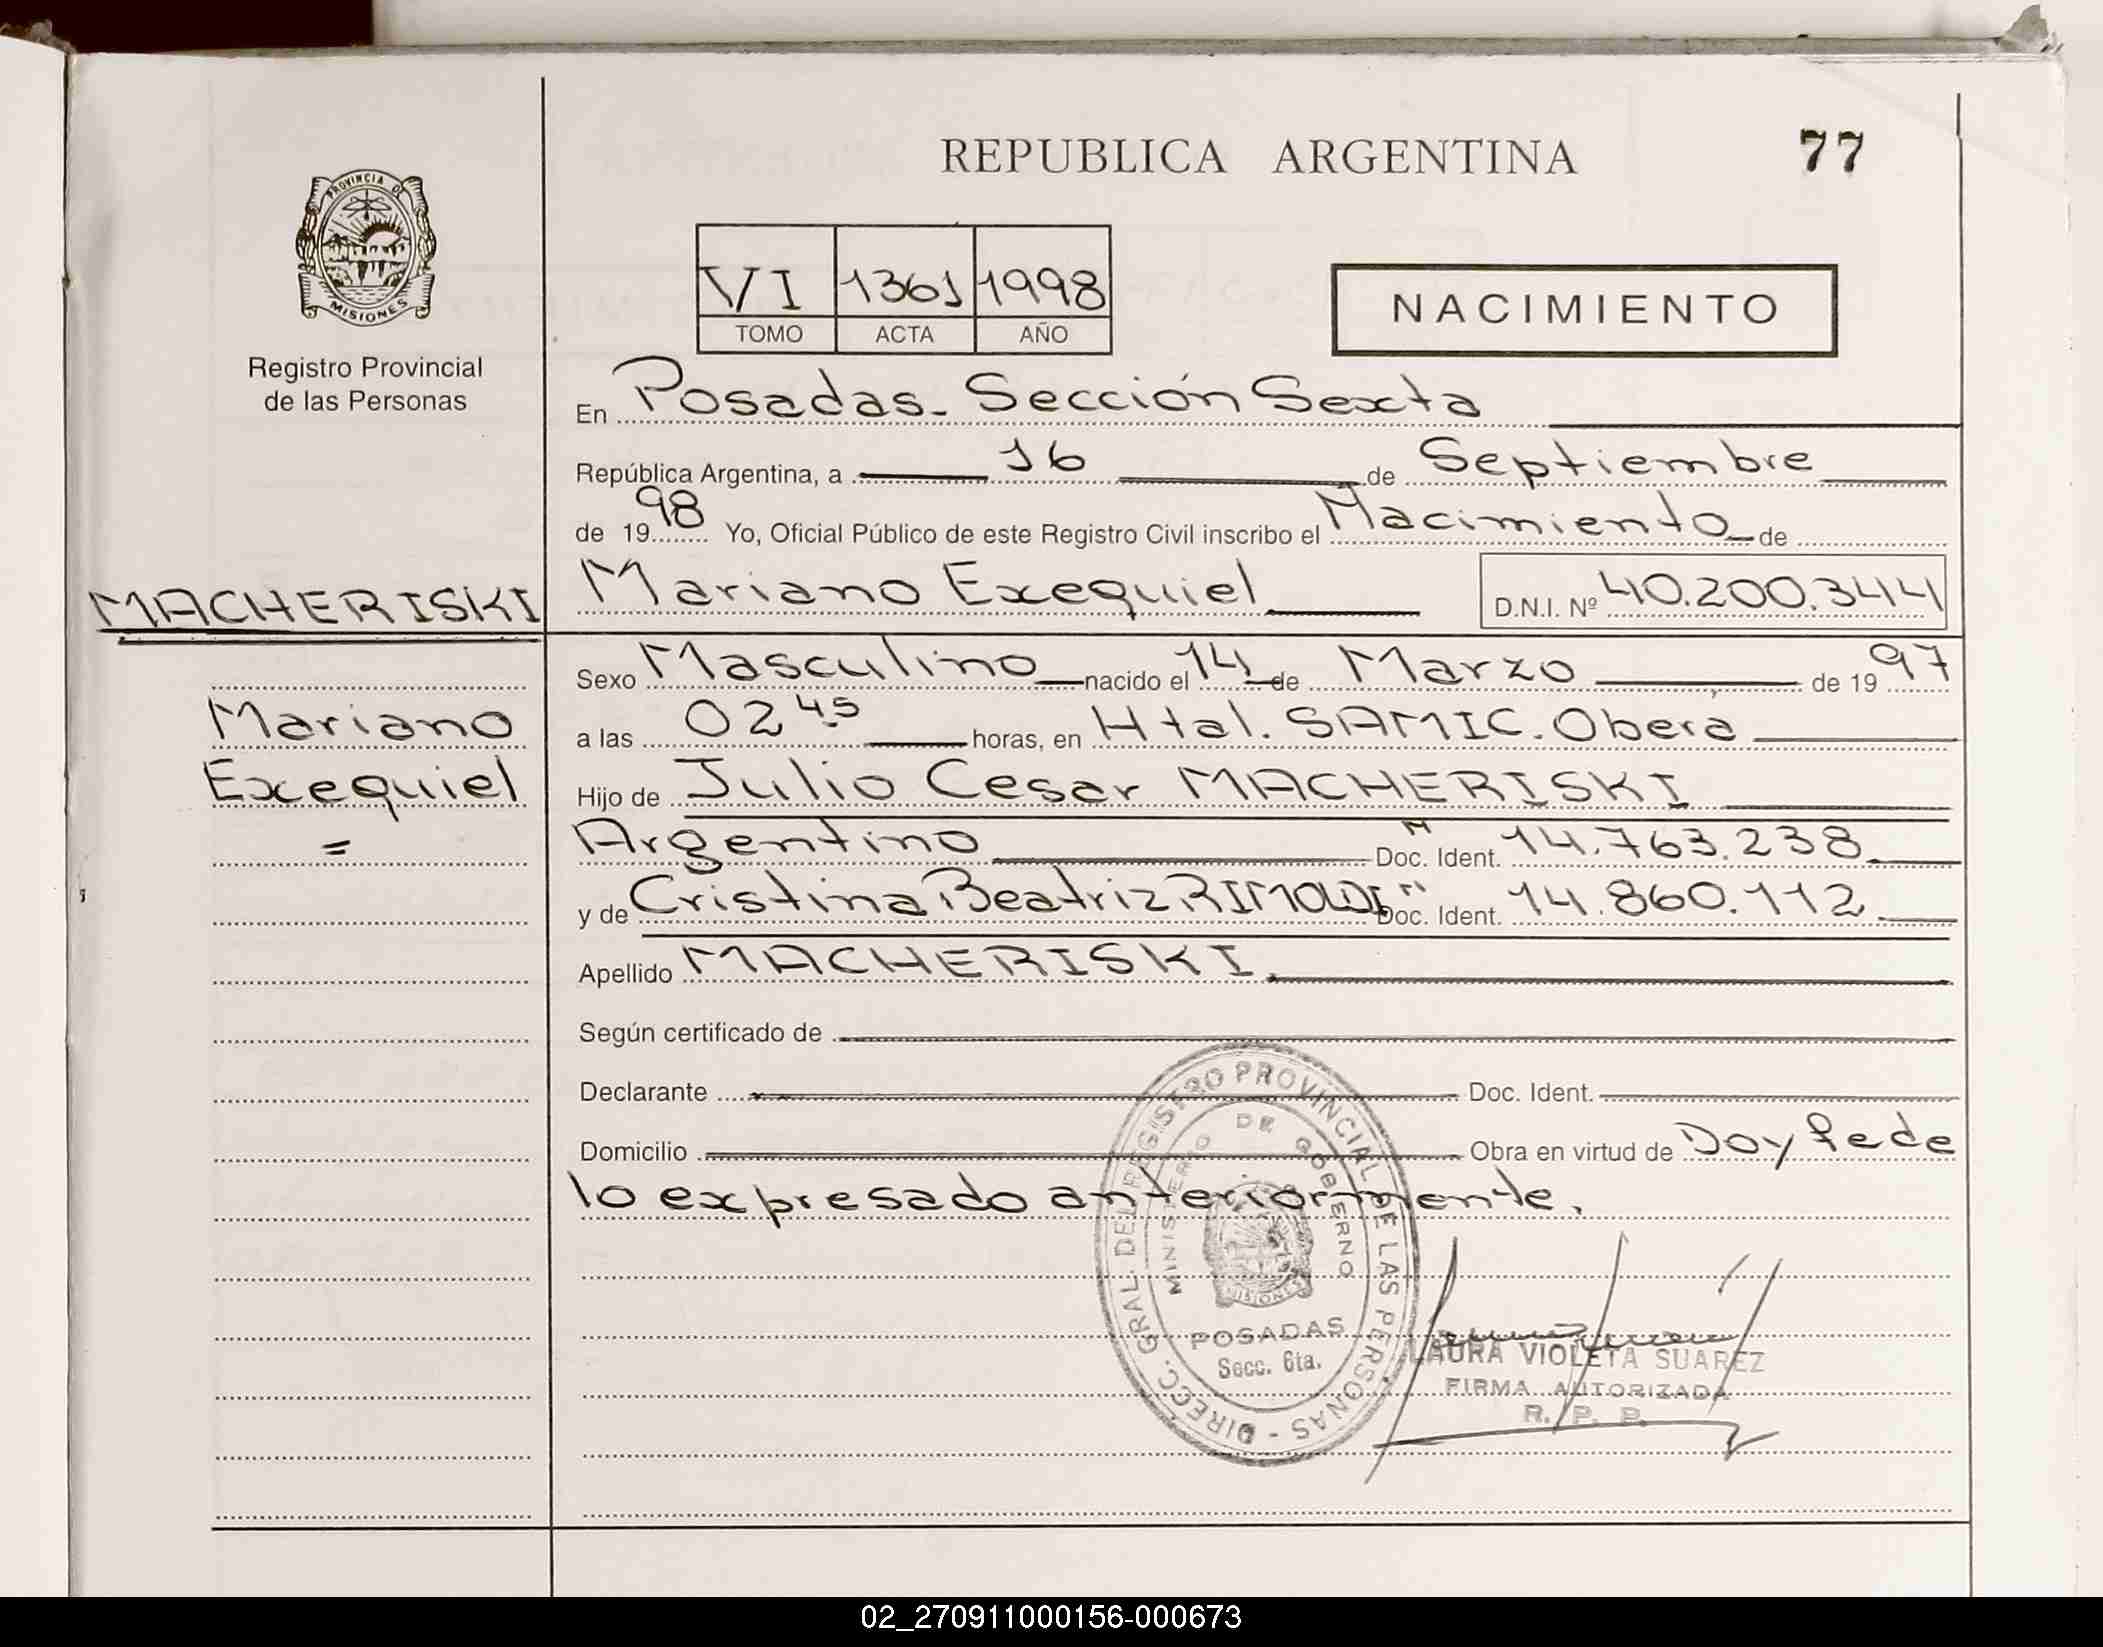 REPUBLICA ARGENTINA
77
PROVINCIA DE
MISIONES
Registro Provincial
de las Personas
VI 1361 1998
TOMO ACTA AÑO
NACIMIENTO
En Posadas. Sección Sexta
República Argentina, a 16 de Septiembre
de 1998 Yo, Oficial Público de este Registro Civil inscribo el Nacimiento de
MACHERISKI
Mariano Exequiel D.N.I. Nº 40.200.344
Sexo Masculino nacido el 14 de Marzo de 1997
Mariano
a las 02 45 horas, en Htal. SAMIC. Oberá
Exequiel
Hijo de Julio Cesar MACHERISKI
=
Argentino M Doc. Ident. 14.763.238.
y de Cristina Beatriz RIMOLDI " Doc. Ident. 14.860.112
Apellido MACHERISKI.
Según certificado de
Declarante Doc. Ident.
Domicilio Obra en virtud de Doy fe de
lo expresado anteriormente.
DIRECC. GRAL. DEL REGISTRO PROVINCIAL DE LAS PERSONAS -
MINISTERIO DE GOBIERNO
MISIONES
POSADAS
Secc. 6ta.
LAURA VIOLETA SUAREZ
FIRMA AUTORIZADA
R. P. P.
02_270911000156-000673